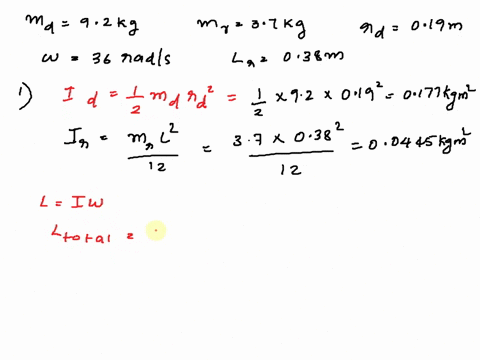 m_d = 9.2 kg   m_r = 3.7 kg   r_d = 0.19 m
ω = 36 rad/s   L_r = 0.38 m
1) I_d = 1/2 m_d r_d² = 1/2 × 9.2 × 0.19² = 0.177 kgm²
I_r = m_r L²/12 = 3.7 × 0.38²/12 = 0.0445 kgm²
L = Iω
L_total =